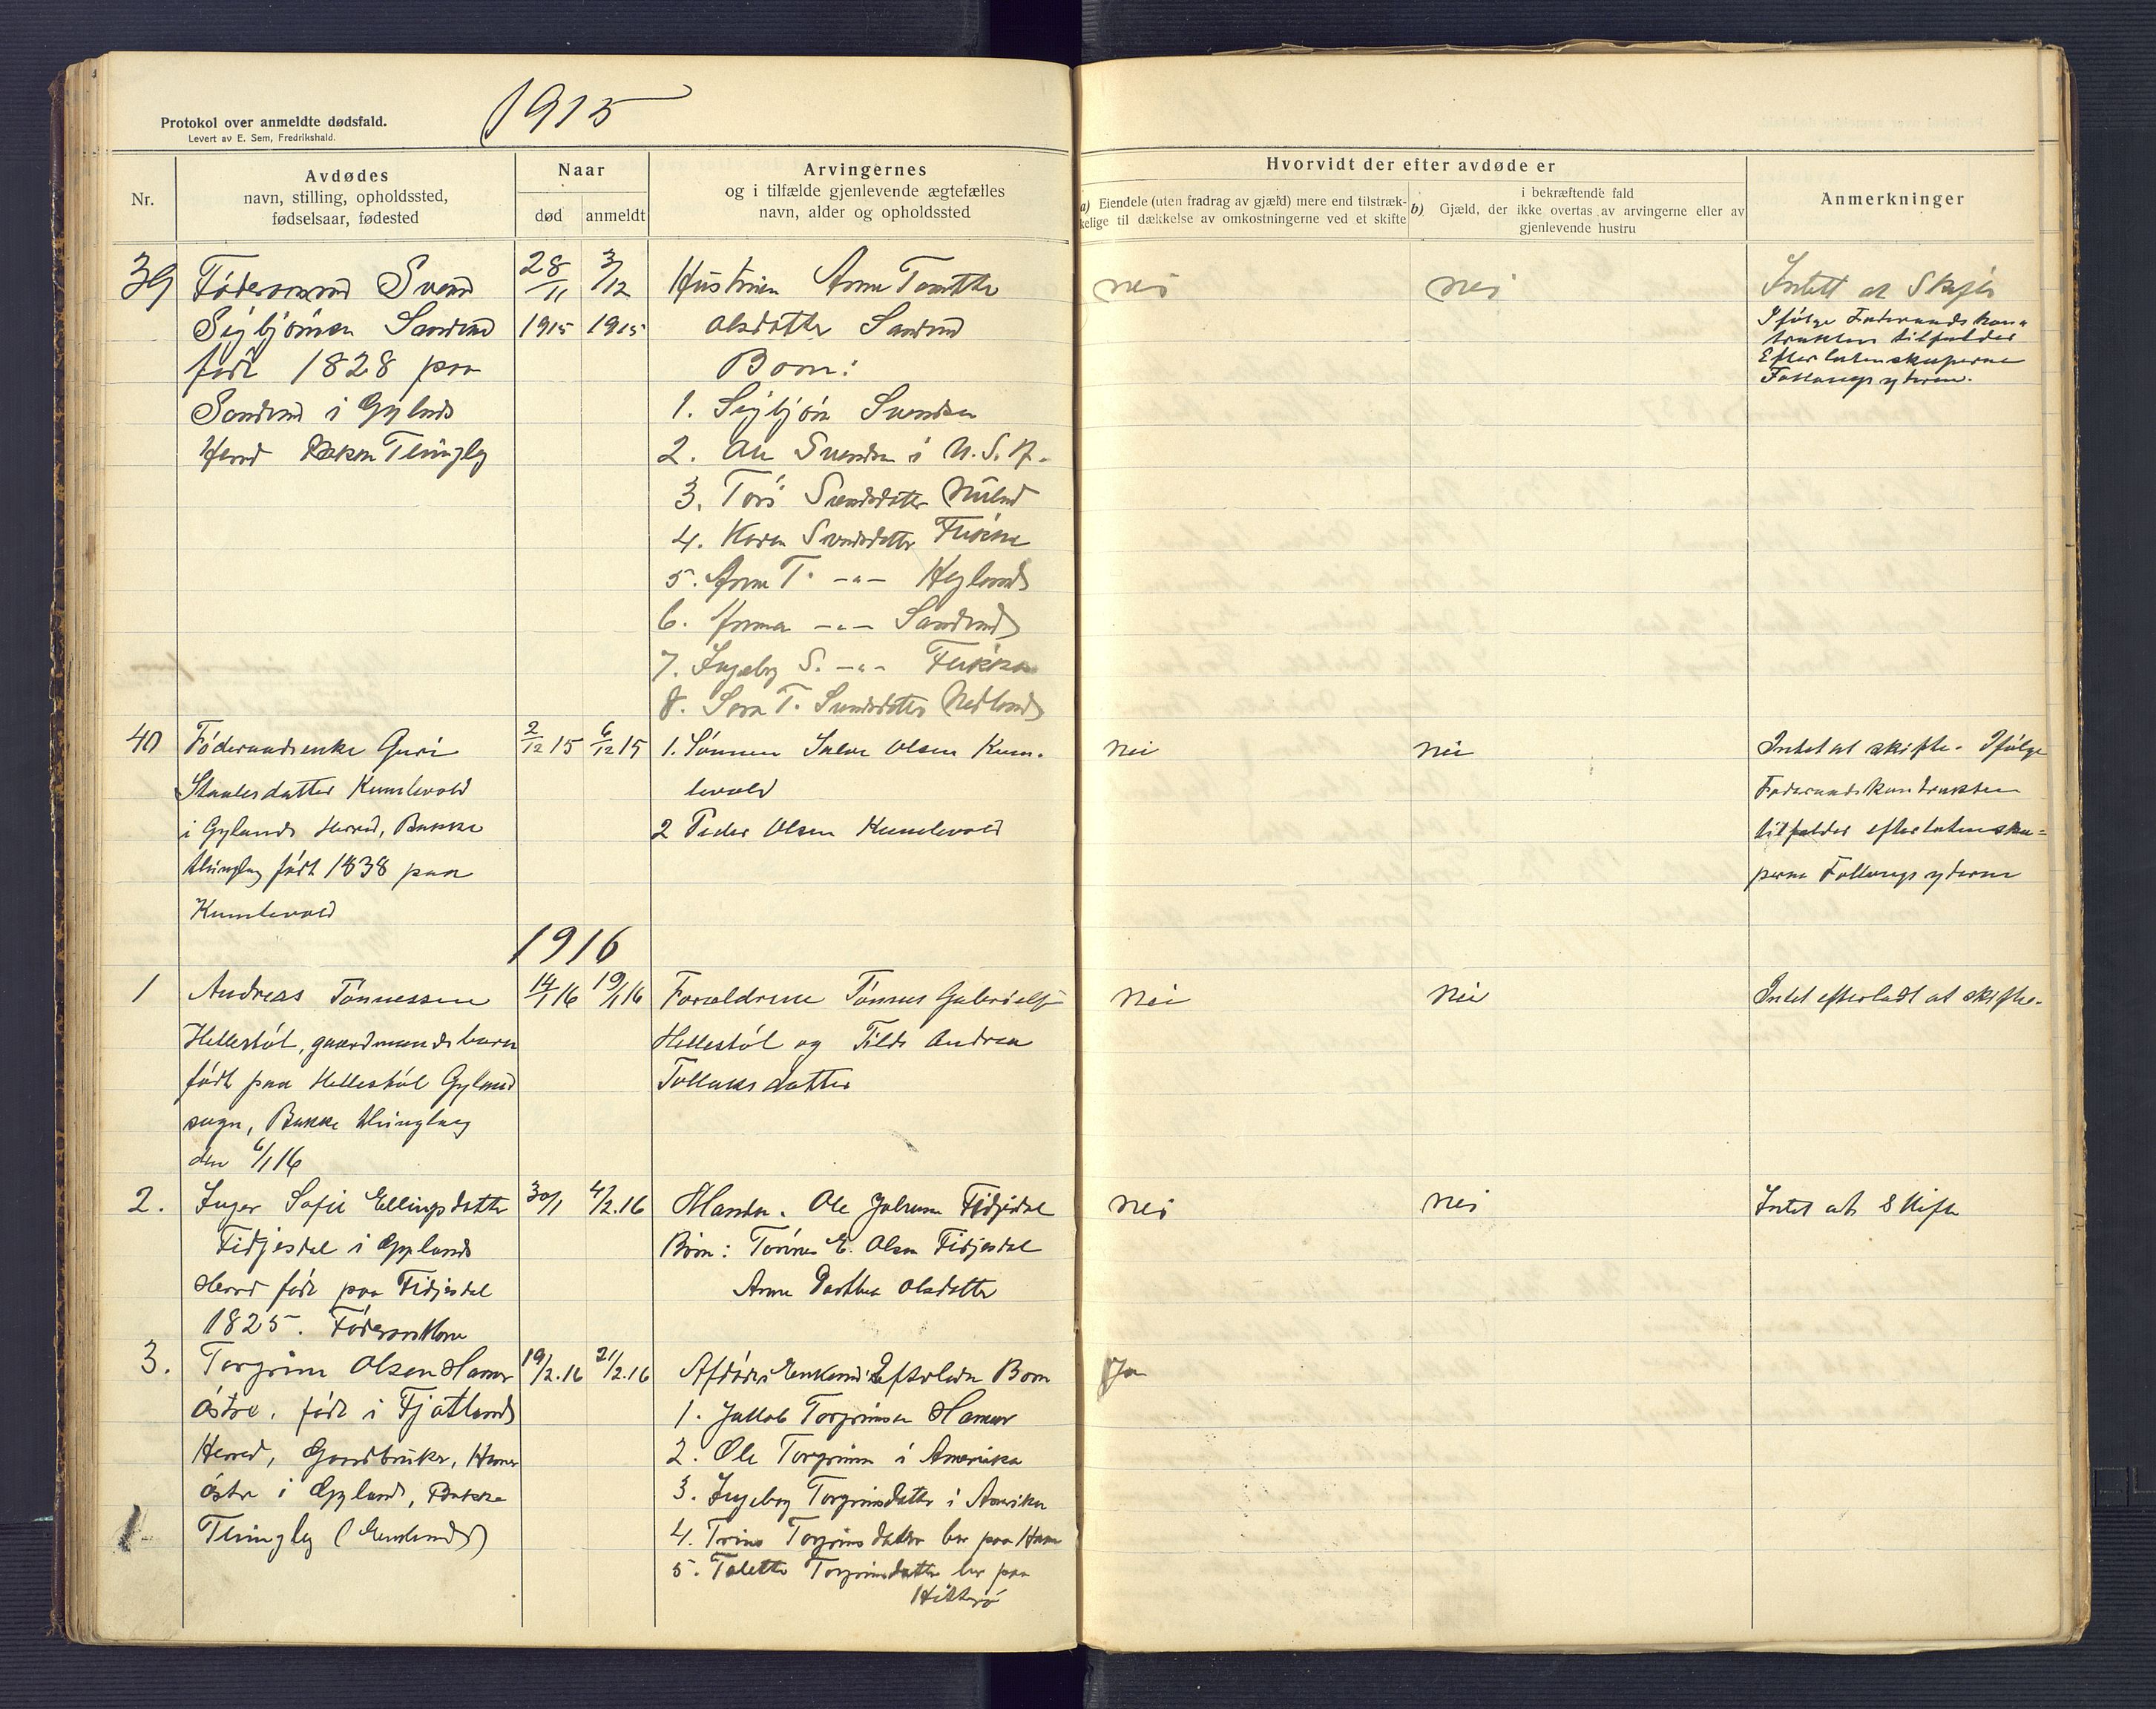 1915
Protokol over anmeldte dødsfald.
Levert av E. Sem, Fredrikshald.
Nr.
Avdødes
navn, stilling, opholdssted,
fødselsaar, fødested
Naar
død
anmeldt
Arvingernes
og i tilfælde gjenlevende ægtefælles
navn, alder og opholdssted
Hvorvidt der efter avdøde er
a) Eiendele (uten fradrag av gjæld) mere end tilstræk-
kelige til dækkelse av omkostningerne ved et skifte
b) i bekræftende fald
Gjæld, der ikke overtas av arvingerne eller av
gjenlevende hustru
Anmerkninger
39
Föderaamand Svend
Sigbjörnsen Sandvand
født 1828 paa
Sandvand i Gylands
Herred Bakke Thinglag
28/11 1915
3/12 1915
Hustruen Anna Tomette
Olsdatter Sandvand
Børn:
1. Sigbjörn Svendsen
2. Ole Svendsen i U.S.A.
3. Svendsdatter
4. Karen Svendsdatter
5. Anna T. -"- Hegland
6. -"- Sandvand
7. Ingeborg S. -"-
8. T. Svendsdatter Nedland
nei
nei
Intet at Skifte
Ifølge Föderaadskon-
trakten tilfalder
Efterladenskaperne
Follaugsyderne.
40
Föderaadsenke Guri
Staalesdatter Kumlevold
i Gylands Herred, Bakke
thinglag født 1838 paa
Kumlevold
2/12 15
6/12 15
1. Sønnen Salve Olsen Kum-
levold
2 Peder Olsen Kumlevold
Nei
Nei
Intet at skifte. Ifølge
Föderaadskontrakten
tilfalder efterladenska-
perne Follaugsyderne
1916
1
Andreas Tönnessen
Hellestöl, gaardmandsbarn
født paa Hellestöl Gyland
sogn, Bakke thinglag
den 6/1 16
14/1 16
19/1 16
Forældrene Tönnes Gabriels
Hellestöl og Tilda Andrea
Tollaksdatter
Nei
Nei
Intet efterladt at skifte.
2.
Inger Sofie Ellingsdatter
Fidjesdal i Gylands
Herred født paa Fidjesdal
1825. Föderaadskone
30/1
4/2.16
Manden. Ole Fidjedal
Børn: Tönnes E. Olsen Fidjesdal
Anne Dorthea Olsdatter
Nei
Nei
Intet at Skifte
3.
Torgrim Olsen Hamer
östre, født i Fjotlands
Herred, Gaardbruker, Hamer
östre i Gyland, Bakke
Thinglag (Enkemand)
19/2.16
21/2.16
Afdødes Enkemd. Efterlader Børn
1. Jakob Torgrimsen Hamer
2. Ole Torgrimsen i Amerika
3. Ingeborg Torgrimsdatter i Amerika
4. Trine Torgrimsdatter bor paa Hamer
5. Talette Torgrimsdatter bor paa
Hitterö
Ja